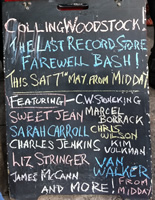 COLLINGWOODSTOCK!
THE LAST RECORD STORE
FAREWELL BASH!
THIS SAT 7TH MAY FROM MIDDAY
FEATURING! - C.W STONEKING
SWEET JEAN MARCEL BORRACK
SARAH CARROLL CHRIS WILSON
CHARLES JENKINS KIM VOLKMAN
LIZ STRINGER VAN WALKER
JAMES McCANN FROM MIDDAY!
AND MORE!